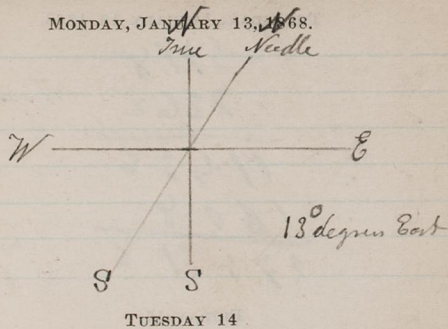 MONDAY, JANUARY 13, 1868.
N N
True Needle
W E
13° degrees East
S S
TUESDAY 14